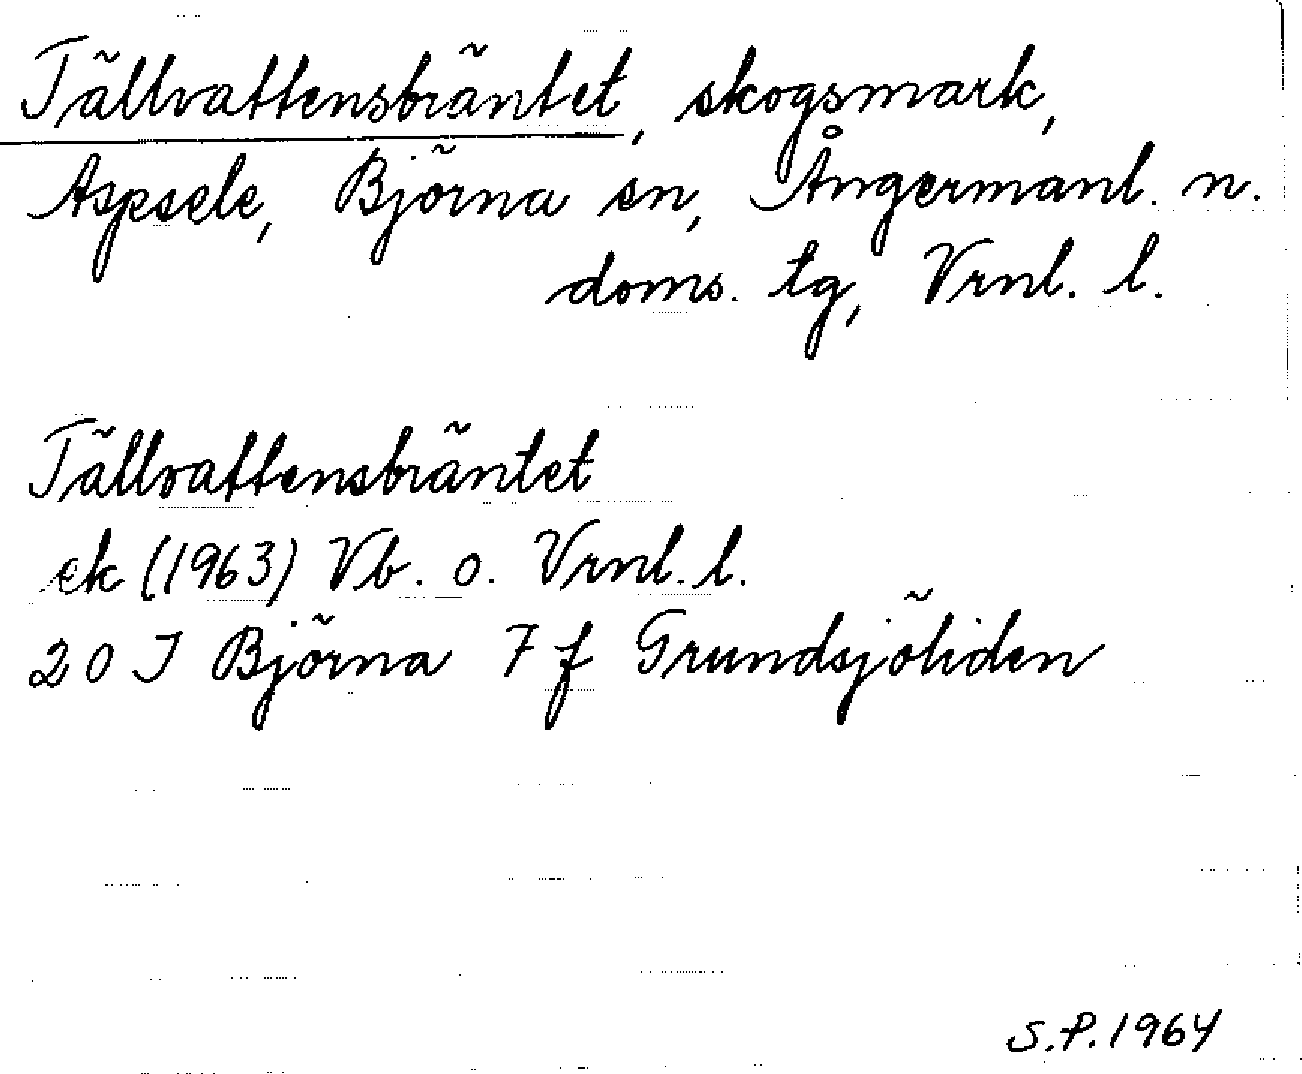 Tällvattensbräntet, skogsmark,
Aspsele, Björna sn, Ångermanl. n.
doms. tg, Vrnl. l.
Tällvattensbräntet
ek (1963) Vb. o. Vrnl. l.
20 I Björna 7 f Grundsjöliden
S.P. 1964